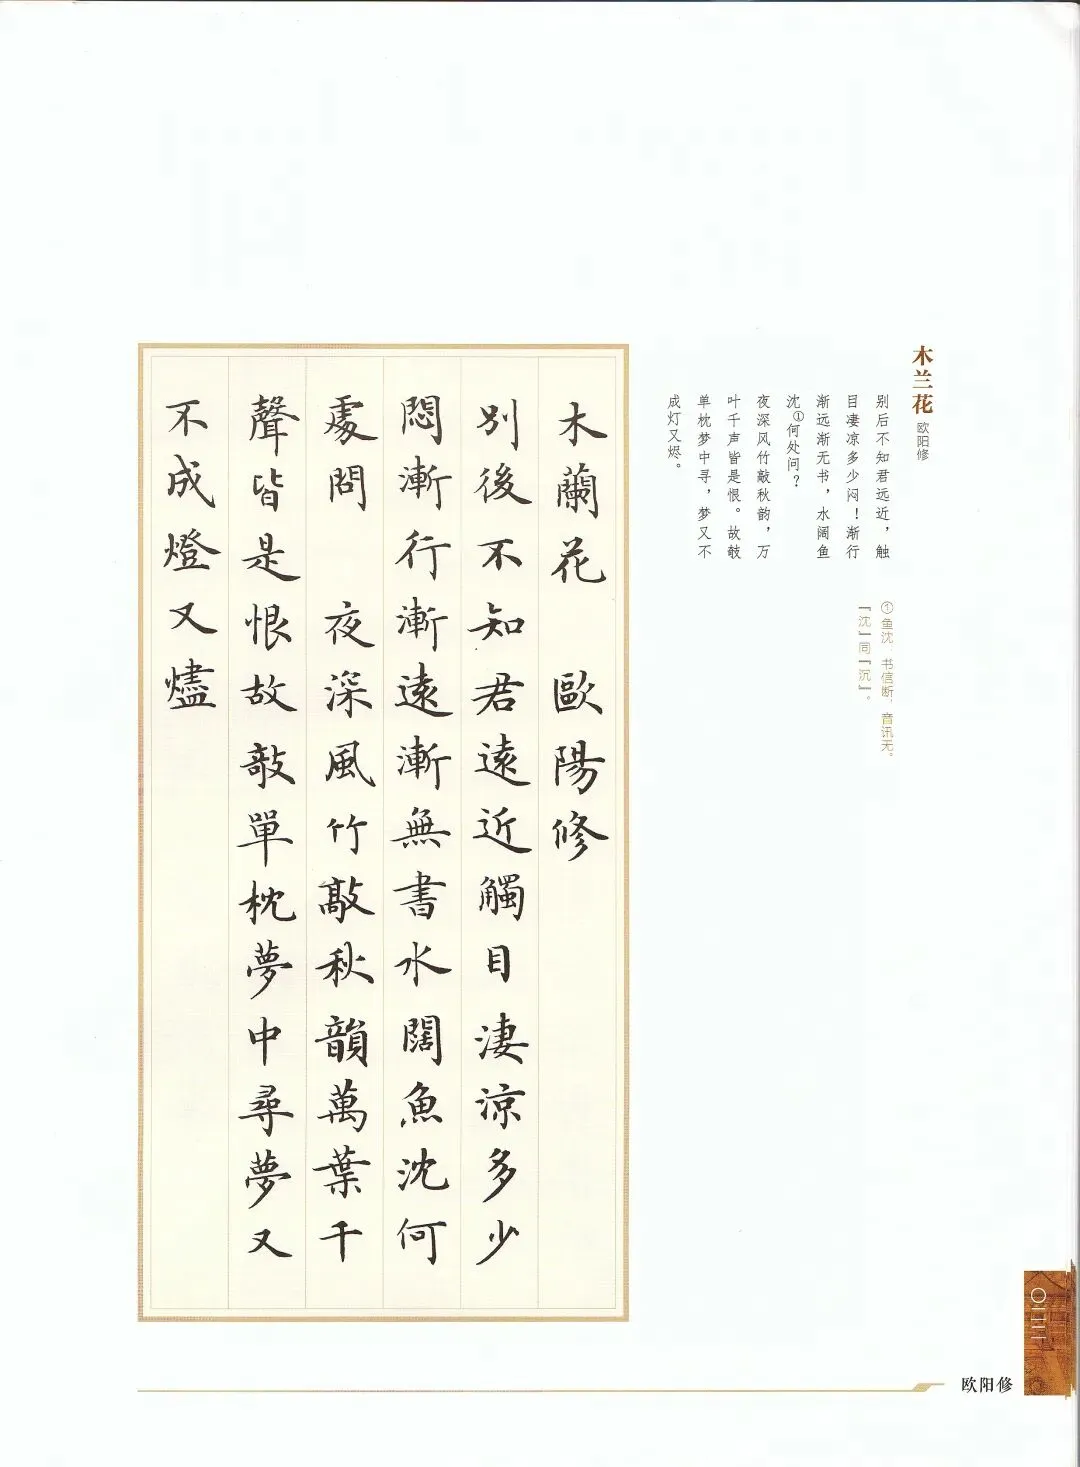 木兰花
欧阳修
别后不知君远近，触
目凄凉多少闷！渐行
渐远渐无书，水阔鱼
沈①何处问？
夜深风竹敲秋韵，万
叶千声皆是恨。故攲
单枕梦中寻，梦又不
成灯又烬。
①鱼沈：书信断，音讯无。
「沈」同「沉」。
木蘭花 歐陽修
別後不知君遠近觸目淒涼多少
悶漸行漸遠漸無書水闊魚沈何
處問 夜深風竹敲秋韻萬葉千
聲皆是恨故攲單枕夢中尋夢又
不成燈又燼
欧阳修